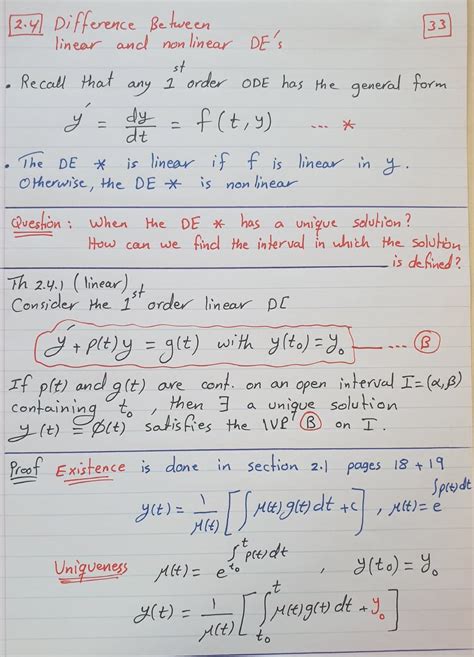 2.4 Difference Between 33
linear and nonlinear DE's
• Recall that any 1st order ODE has the general form
y' = dy/dt = f(t,y) --- *
• The DE * is linear if f is linear in y.
Otherwise, the DE * is nonlinear
Question: When the DE * has a unique solution?
How can we find the interval in which the solution
is defined?
Th 2.4.1 (linear)
Consider the 1st order linear DE
y' + p(t)y = g(t) with y(t₀)=y₀ --- B
If p(t) and g(t) are cont. on an open interval I=(α,β)
containing t₀, then ∃ a unique solution
y(t) ≡ Ø(t) satisfies the IVP B on I.
Proof Existence is done in section 2.1 pages 18 + 19
y(t) = 1/μ(t) [∫ μ(t)g(t)dt + c], μ(t) = e^∫p(t)dt
Uniqueness μ(t) = e^∫_{t₀}^{t} p(t)dt, y(t₀) = y₀
y(t) = 1/μ(t) [∫_{t₀}^{t} μ(t)g(t)dt + y₀]